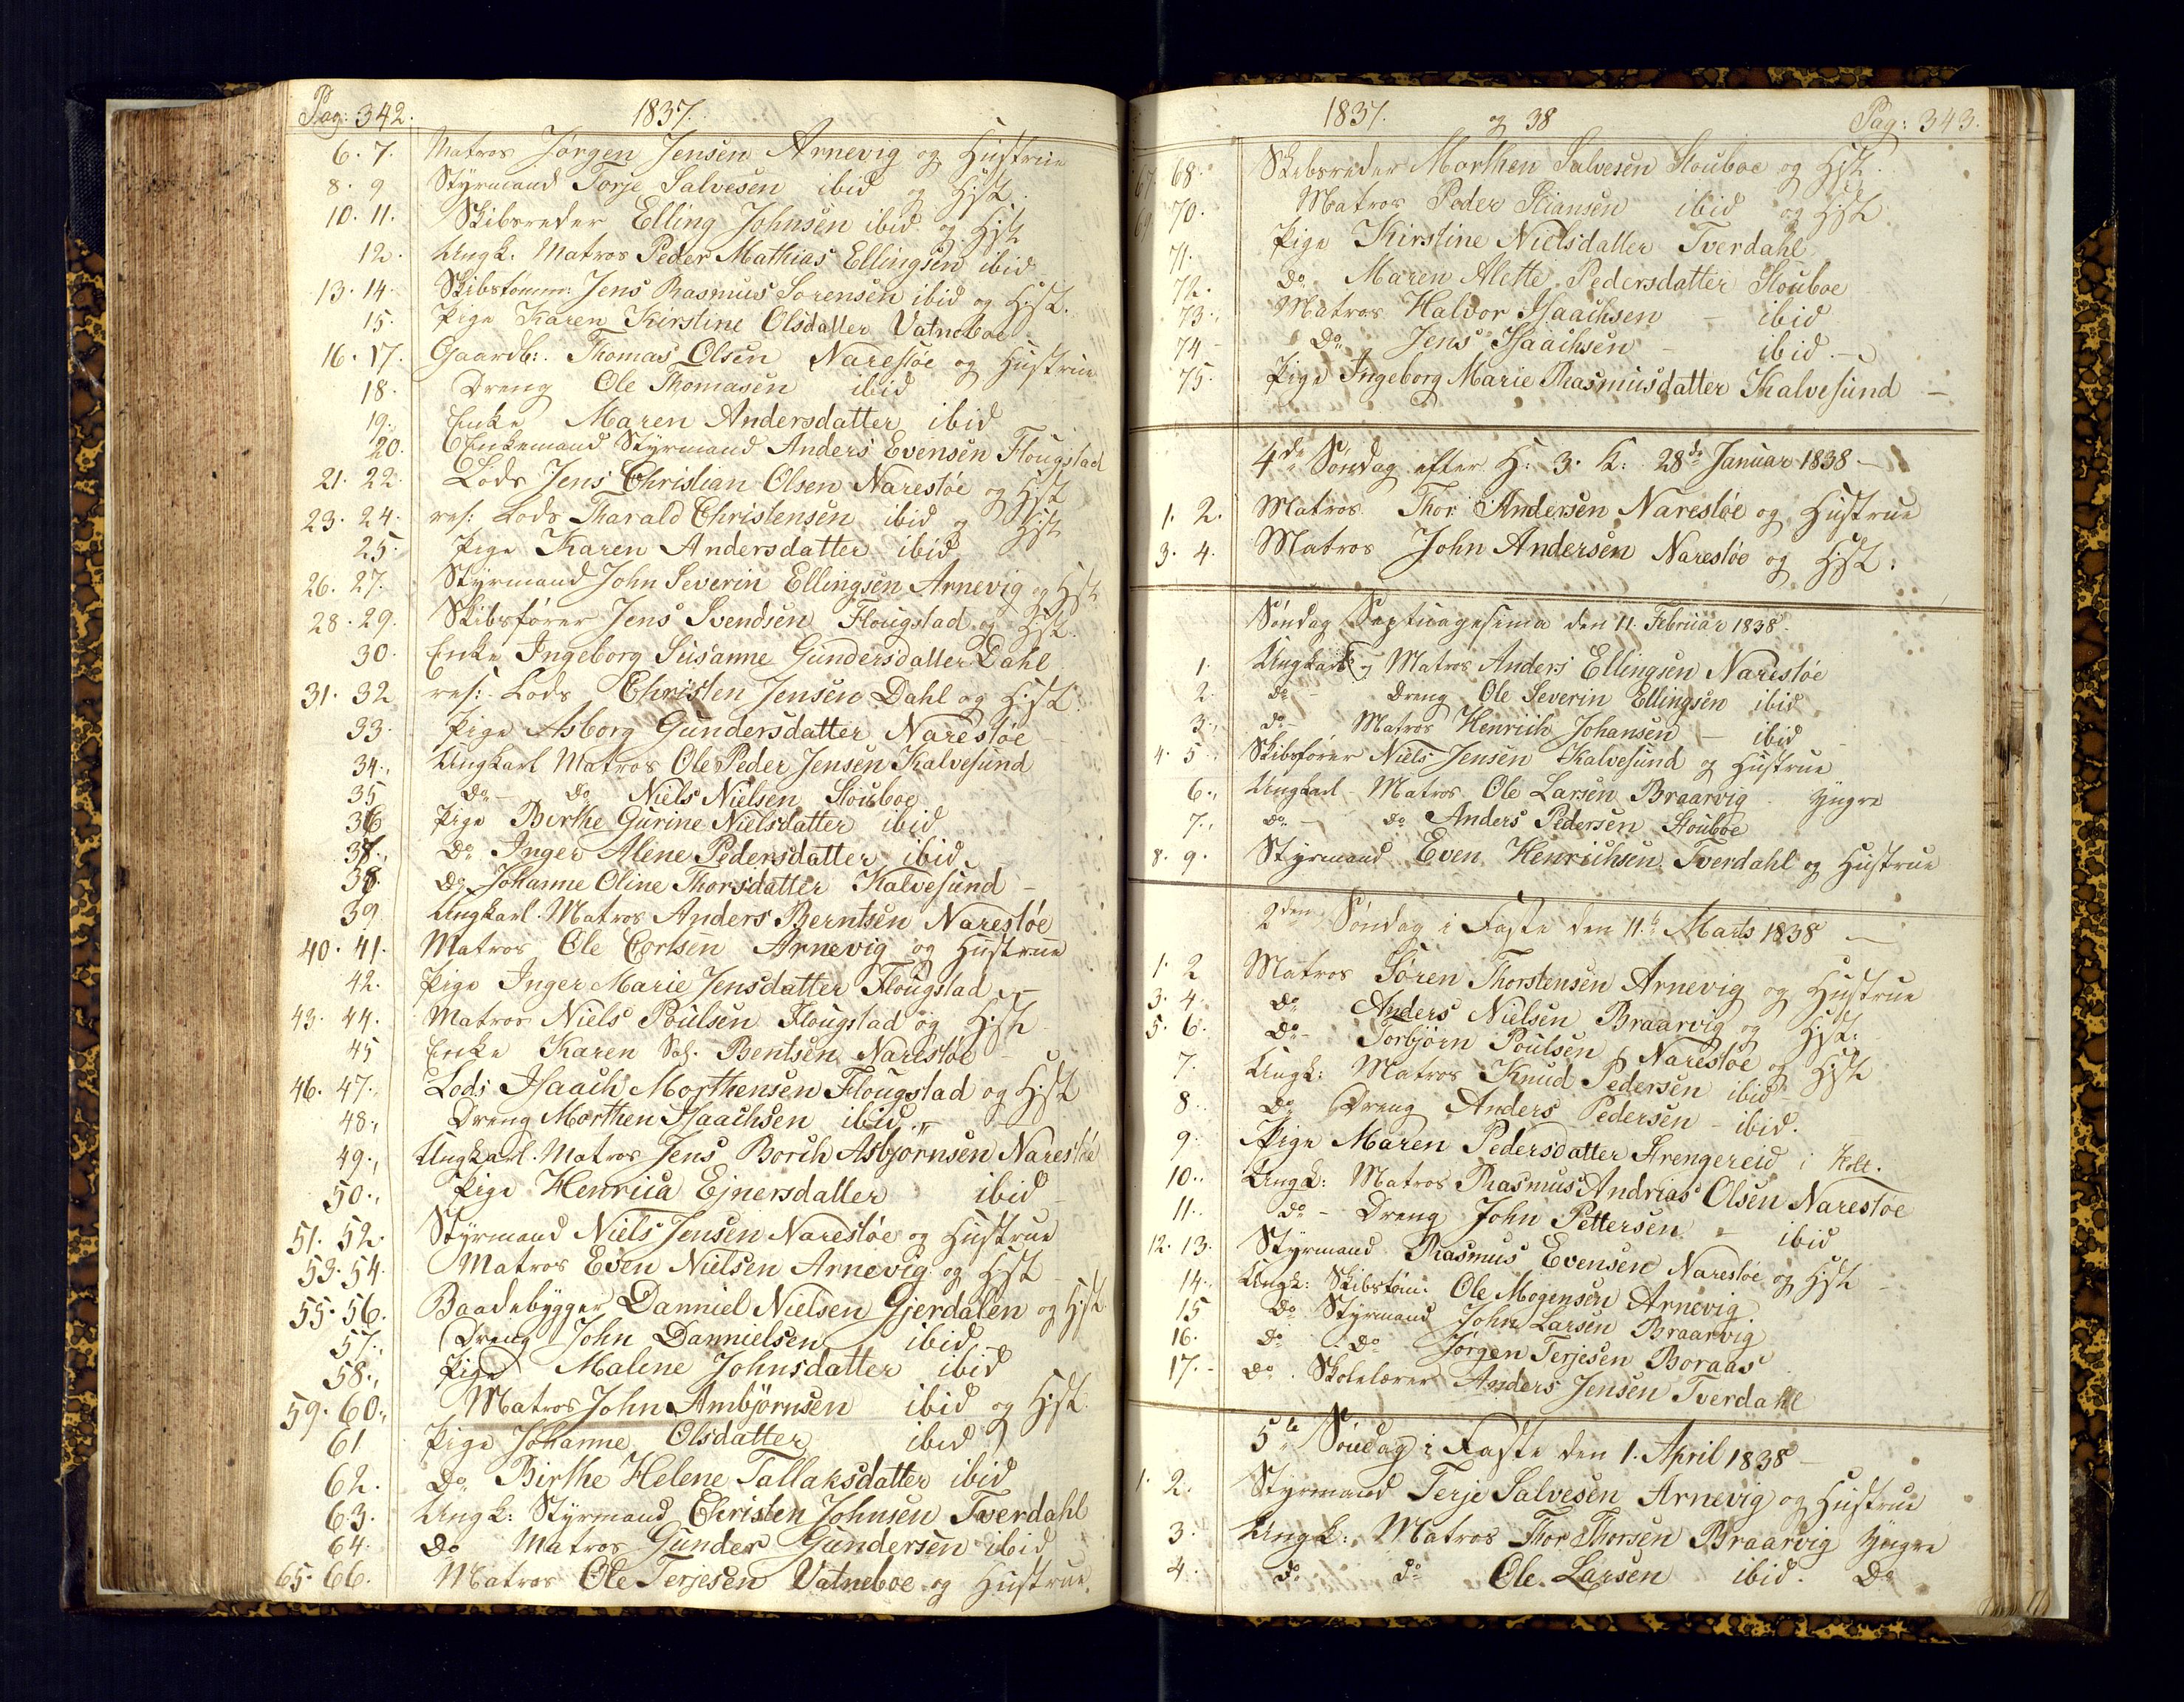 Pag: 342. 1837.
6. 7. Matros Jørgen Jensen Arnevig og Hustrue
8. 9 Styrmand Torje Salvesen ibid og Hst.
10. 11. Skibsreder Elling Johnsen ibid og Hst
12. Ungk. Matros Peder Mathias Ellingsen ibid
13. 14. Skibstømm: Jens Rasmus Sørensen ibid og Hst.
15. Pige Karen Kirstine Olsdatter Vatneboe
16. 17. Gaardb: Thomas Olsen Narestøe og Hustrue
18. Dreng Ole Thomasen ibid
19. Enke Maren Andersdatter ibid
20. Enkemand Styrmand Anders Evensen Flougstad
21. 22. Lods Jens Christian Olsen Narestøe og Hst
23. 24. res: Lods Tharald Christensen ibid og Hst
25. Pige Karen Andersdatter ibid
26. 27. Styrmand John Severin Ellingsen Arnevig og Hst
28. 29. Skibsfører Jens Svendsen Flougstad og Hst.
30. Enke Ingeborg Susanne Gundersdatter Dahl
31. 32 res: Lods Christen Jensen Dahl og Hst.
33. Pige Asborg Gundersdatter Narestøe
34. Ungkarl Matros Ole Peder Jensen Kalvesund
35 do do Niels Nielsen Stouboe
36 Pige Birthe Gurine Nielsdatter ibid
37. do Inger Alene Pedersdatter ibid
38. do Johanne Oline Thorsdatter Kalvesund
39 Ungkarl. Matros Anders Berntsen Narestøe
40. 41. Matros Ole Corlsen Arnevig og Hustrue
42. Pige Inger Marie Jensdatter Flougstad
43. 44. Matros Niels Poulsen Flougstad og Hst
45 Enke Karen Sal. Bentsen Narestøe
46. 47. Lods Isaach Morthensen Flougstad og Hst
48. Dreng Morthen Isaachsen ibid
49. Ungkarl. Matros Jens Borch Asbjørnsen Narestøe
50. Pige Henrica Ejnersdatter ibid
51. 52. Styrmand Niels Jensen Narestøe og Hustrue
53. 54. Matros Even Nielsen Arnevig og Hst
55. 56. Baadebygger Danniel Nielsen Gjerdalen og Hst
57. Dreng John Dannielsen ibid
58. Pige Malene Johnsdatter ibid
59. 60. Matros John Ambjørnsen ibid og Hst.
61 Pige Johanne Olsdatter ibid
62. do Birthe Helene Tallaksdatter ibid
63. Ungk: Styrmand Christen Johnsen Tverdahl
64. do Matros Gunder Gundersen ibid
65. 66. Matros Ole Terjesen Vatneboe og Hustrue.
1837. og 38 Pag: 343.
67. 68. Skibsreder Morthen Salvesen Stouboe og Hst.
69. 70. Matros Peder Stiansen ibid og Hst
71. Pige Kirstine Nielsdatter Tverdahl
72. do Maren Alette Pedersdatter Stouboe
73. Matros Halvor Isaachsen - ibid
74 - do Jens Isaachsen - ibid. -
75. Pige Ingeborg Marie Rasmusdatter Kalvesund -
4de Søndag efter H: 3. K: 28de Januar 1838 -
1. 2. Matros Thor Andersen Narestøe og Hustrue
3. 4. Matros John Andersen Narestøe og Hst.
Søndag Septuagesima den 11. Februar 1838.
1. Ungkarl og Matros Anders Ellingsen Narestøe
2. do - Dreng Ole Severin Ellingsen ibid
3. do - Matros Henrich Johansen - ibid
4. 5. Skibsfører Niels Jensen Kalvesund og Hustrue
6. Ungkarl - Matros Ole Larsen Braarvig Yngre
7. do - do Anders Pedersen Stouboe
8. 9. Styrmand Even Henrichsen Tverdahl og Hustrue
2den Søndag i Faste den 11te Marts 1838 -
1. 2 Matros Søren Thorstensen Arnevig og Hustrue
3. 4. do Anders Nielsen Braarvig og Hst:
5. 6. do - Torbjørn Poulsen Narestøe og Hst
7. Ungk: Matros Knud Pedersen ibid
8. do Dreng Anders Pedersen - ibid.
9. Pige Maren Pedersdatter Strengereid i Holt.
10. Ungk: Matros Rasmus Andrias Olsen Narestøe
11. do - Dreng John Pettersen - ibid
12. 13. Styrmand Rasmus Evensen Narestøe og Hst
14. Ungk: Skibstøm: Ole Mogensen Arnevig
15 do Styrmand John Larsen Braarvig
16. do do Jørgen Terjesen Boraas
17. - do. Skolelærer Anders Jensen Tverdahl
5te Søndag i Faste den 1. April 1838 -
1. 2. Styrmand Terje Salvesen Arnevig og Hustrue
3. Ungk: Matros Thor Thorsen Braarvig Yngre
4. do do Ole Larsen ibid. do